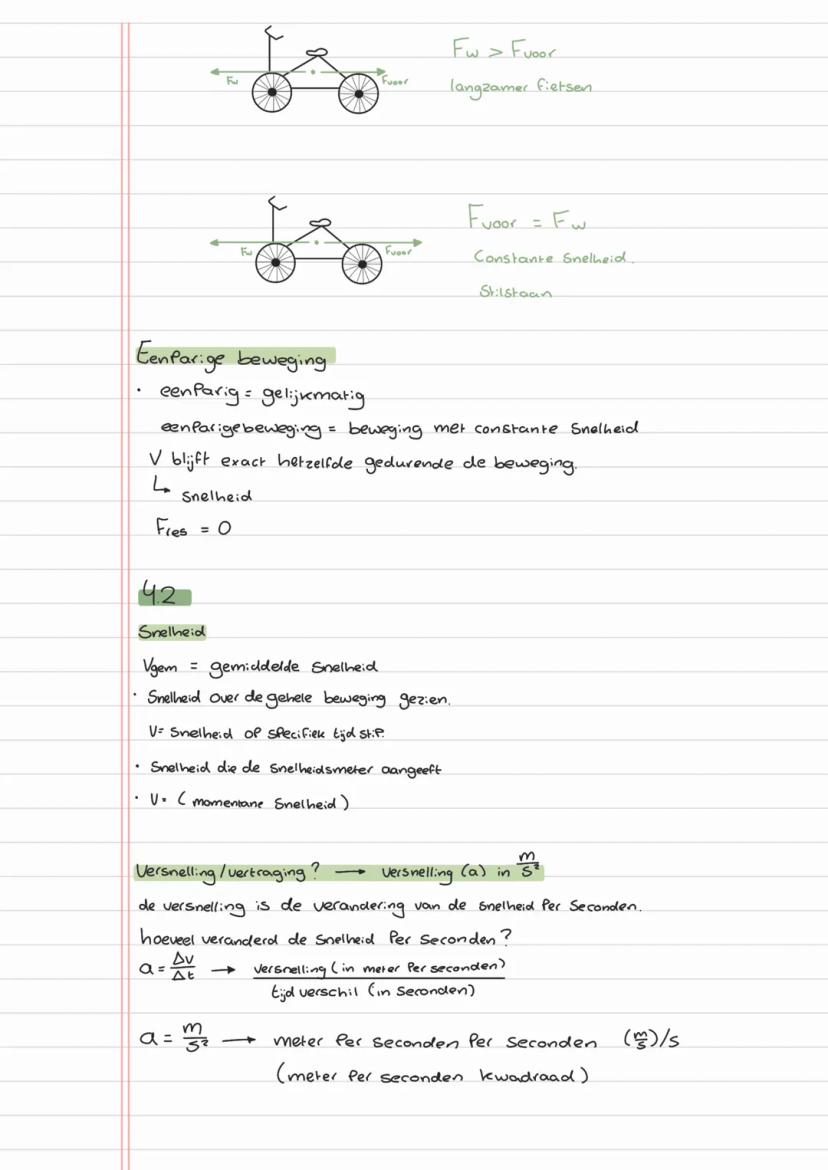 Fw > Fvoor
Fw Fvoor
langzamer fietsen
Fvoor = Fw
Fw Fvoor
Constante Snelheid.
Stilstaan
Eenparige beweging
• eenparig = gelijkmatig
eenparigebeweging = beweging met constante Snelheid
V blijft exact hetzelfde gedurende de beweging.
↳ Snelheid
Fres = 0
4.2
Snelheid
Vgem = gemiddelde Snelheid
• Snelheid over de gehele beweging gezien.
V= Snelheid op specifiek tijdstip.
• Snelheid die de Snelheidsmeter aangeeft
• V= (momentane Snelheid)
Versnelling/vertraging? → versnelling (a) in m/s²
de versnelling is de verandering van de snelheid Per Seconden.
hoeveel veranderd de Snelheid Per seconden?
a = Δv/Δt → versnelling (in meter Per seconden)
tijd verschil (in Seconden)
a = m/s² → meter Per seconden Per seconden (m/s)/s
(meter Per seconden kwadraad)